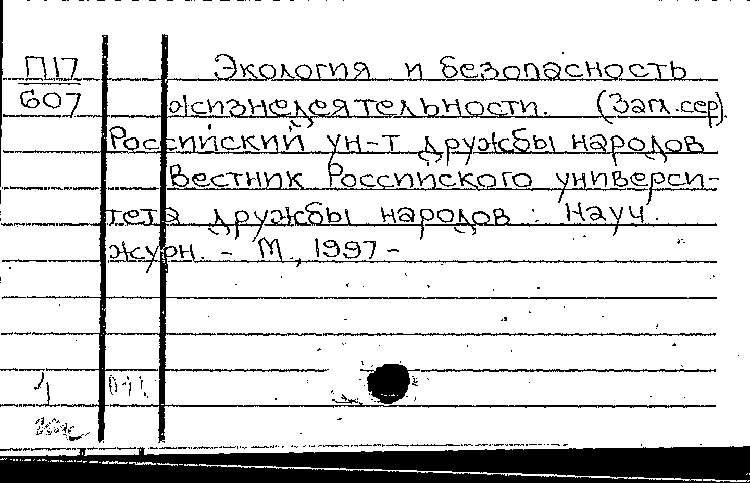 П17 Экология и безопасность
607 жизнедеятельности. (Загл. сер).
Российский ун-т дружбы народов
Вестник Российского универси-
тета дружбы народов : Науч.
журн. - М., 1997 -
1